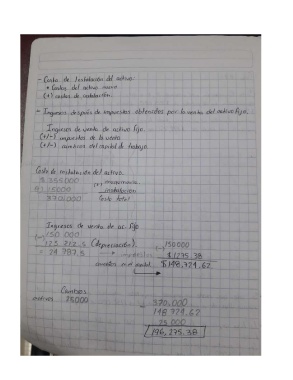 - Costo de Instalación del activo.
• Costos del activo nuevo
(+) costos de instalación.
- Ingresos después de impuestos obtenidos por la venta del activo fijo.
Ingresos de venta de activo fijo
(+/-) impuestos de la venta
(+/-) cambios del capital de trabajo
Costo de instalación del activo.
(+)
instalación
Costo total
Ingresos de venta de ac. fijo
150 000
(depreciación)
150000
= 24 787.5
$ 1275.38
$ 148,724.62
Cambios
25000
= 370,000
148 724.62
25 000
196,275.38